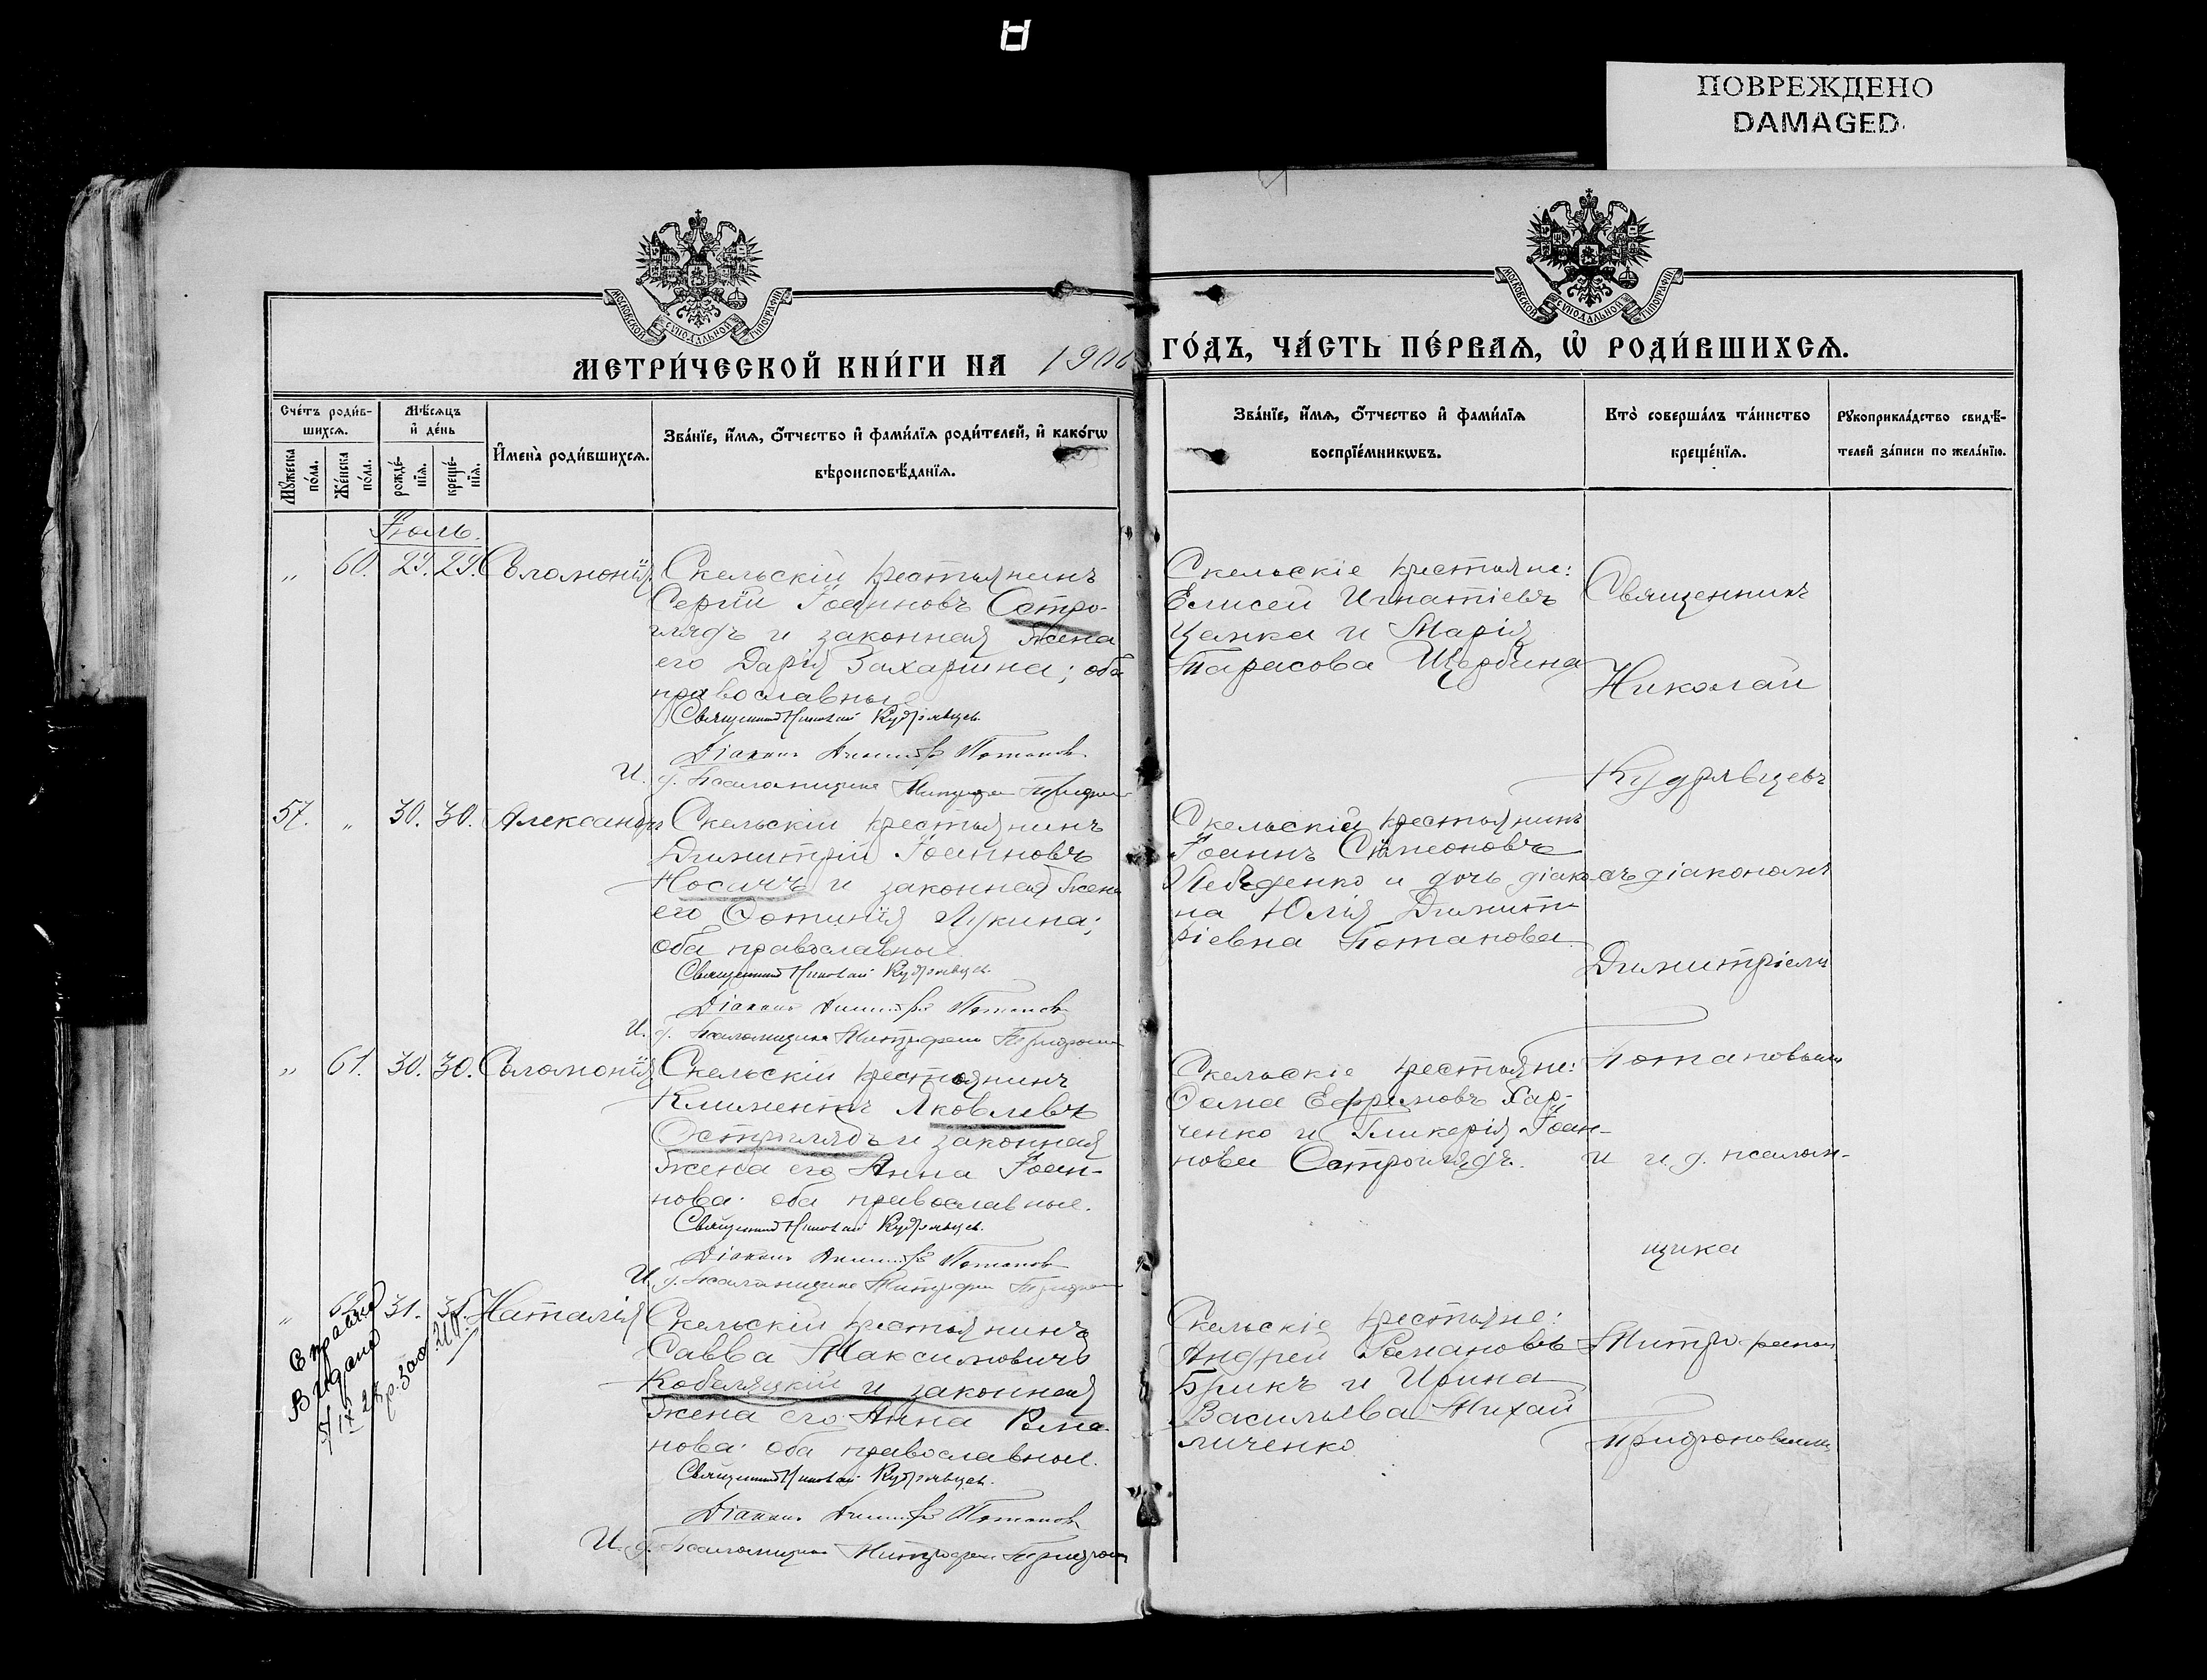 ПОВРЕЖДЕНО
DAMAGED
МОСКОВСКОЙ СѴНОДАЛЬНОЙ ТИПОГРАФІИ
МОСКОВСКОЙ СѴНОДАЛЬНОЙ ТИПОГРАФІИ
МЕТРИ́ЧЕСКОЙ КНИ́ГИ НА
ГО́ДЪ, ЧА́СТЬ ПЕ́РВАѦ, Ѡ҆ РОДИ́ВШИХСѦ.
Сче́тъ роди́в-
шихсѧ.
Мѣ́сѧцъ
и҆ де́нь
Мꙋ́жеска
по́ла.
Же́нска
по́ла.
рожде́-
нїѧ.
креще́-
нїѧ.
И҆мена̀ роди́вшихсѧ.
Зва́нїе, и҆́мѧ, ѻ҆́тчество и҆ фами́лїѧ роди́телей, и҆ како́гѡ
вѣроисповѣ́данїѧ.
Зва́нїе, и҆́мѧ, ѻ҆́тчество и҆ фами́лїѧ
воспрїе́мникѡвъ.
Кто̀ соверша́лъ та́инство
креще́нїѧ.
Рꙋкоприкла́дство свидѣ́-
телей за́писи по жела́нїю.
Іюль.
„ 60. 29. 29. Соломонія
Скельскій крестьянинъ
Сергій Іоанновъ Остро-
глядъ и законная жена
его Дарія Захарина; оба
православные
Священникъ Николай Кудрявцевъ
Діаконъ Димитрій Потаповъ
И. д. Псаломщика Митрофанъ
Скельскіе крестьяне:
Елисей Игнатіевъ
Цапка и Марія
Тарасова Щербина
Священникъ
Николай
Кудрявцевъ
57. „ 30. 30. Александръ
Скельскій крестьянинъ
Димитрій Іоанновъ
Носачъ и законная жена
его Фотинія Лукина;
оба православные
Священникъ Николай Кудрявцевъ
Діаконъ Димитрій Потаповъ
И. д. Псаломщика Митрофанъ
Скельскій крестьянинъ
Іоаннъ Симеоновъ
и дочь діако-
на Юлія Димит-
ріевна Потапова.
съ діакономъ
Димитріемъ
Потаповымъ
„ 61. 30. 30. Соломонія
Скельскій крестьянинъ
Климентъ Яковлевъ
Остроглядъ и законная
жена его Анна Іоан-
нова; оба православные.
Священникъ Николай Кудрявцевъ
Діаконъ Димитрій Потаповъ
И. д. Псаломщика Митрофанъ
Скельскіе крестьяне:
Фома Ефремовъ Хар-
ченко и Гликерія Іоан-
нова Остроглядъ.
и и. д. псалом-
щика
„ 62. 31. 31. Наталія
Скельскій крестьянинъ
Савва Максимовичъ
Кобеляцкій и законная
жена его Анна Рома-
нова; оба православные.
Священникъ Николай Кудрявцевъ
Діаконъ Димитрій Потаповъ
И. д. Псаломщика Митрофанъ
Скельскіе крестьяне:
Андрей Романовъ
Брикъ и Ирина
Васильева Михай
личенко
Митрофаномъ